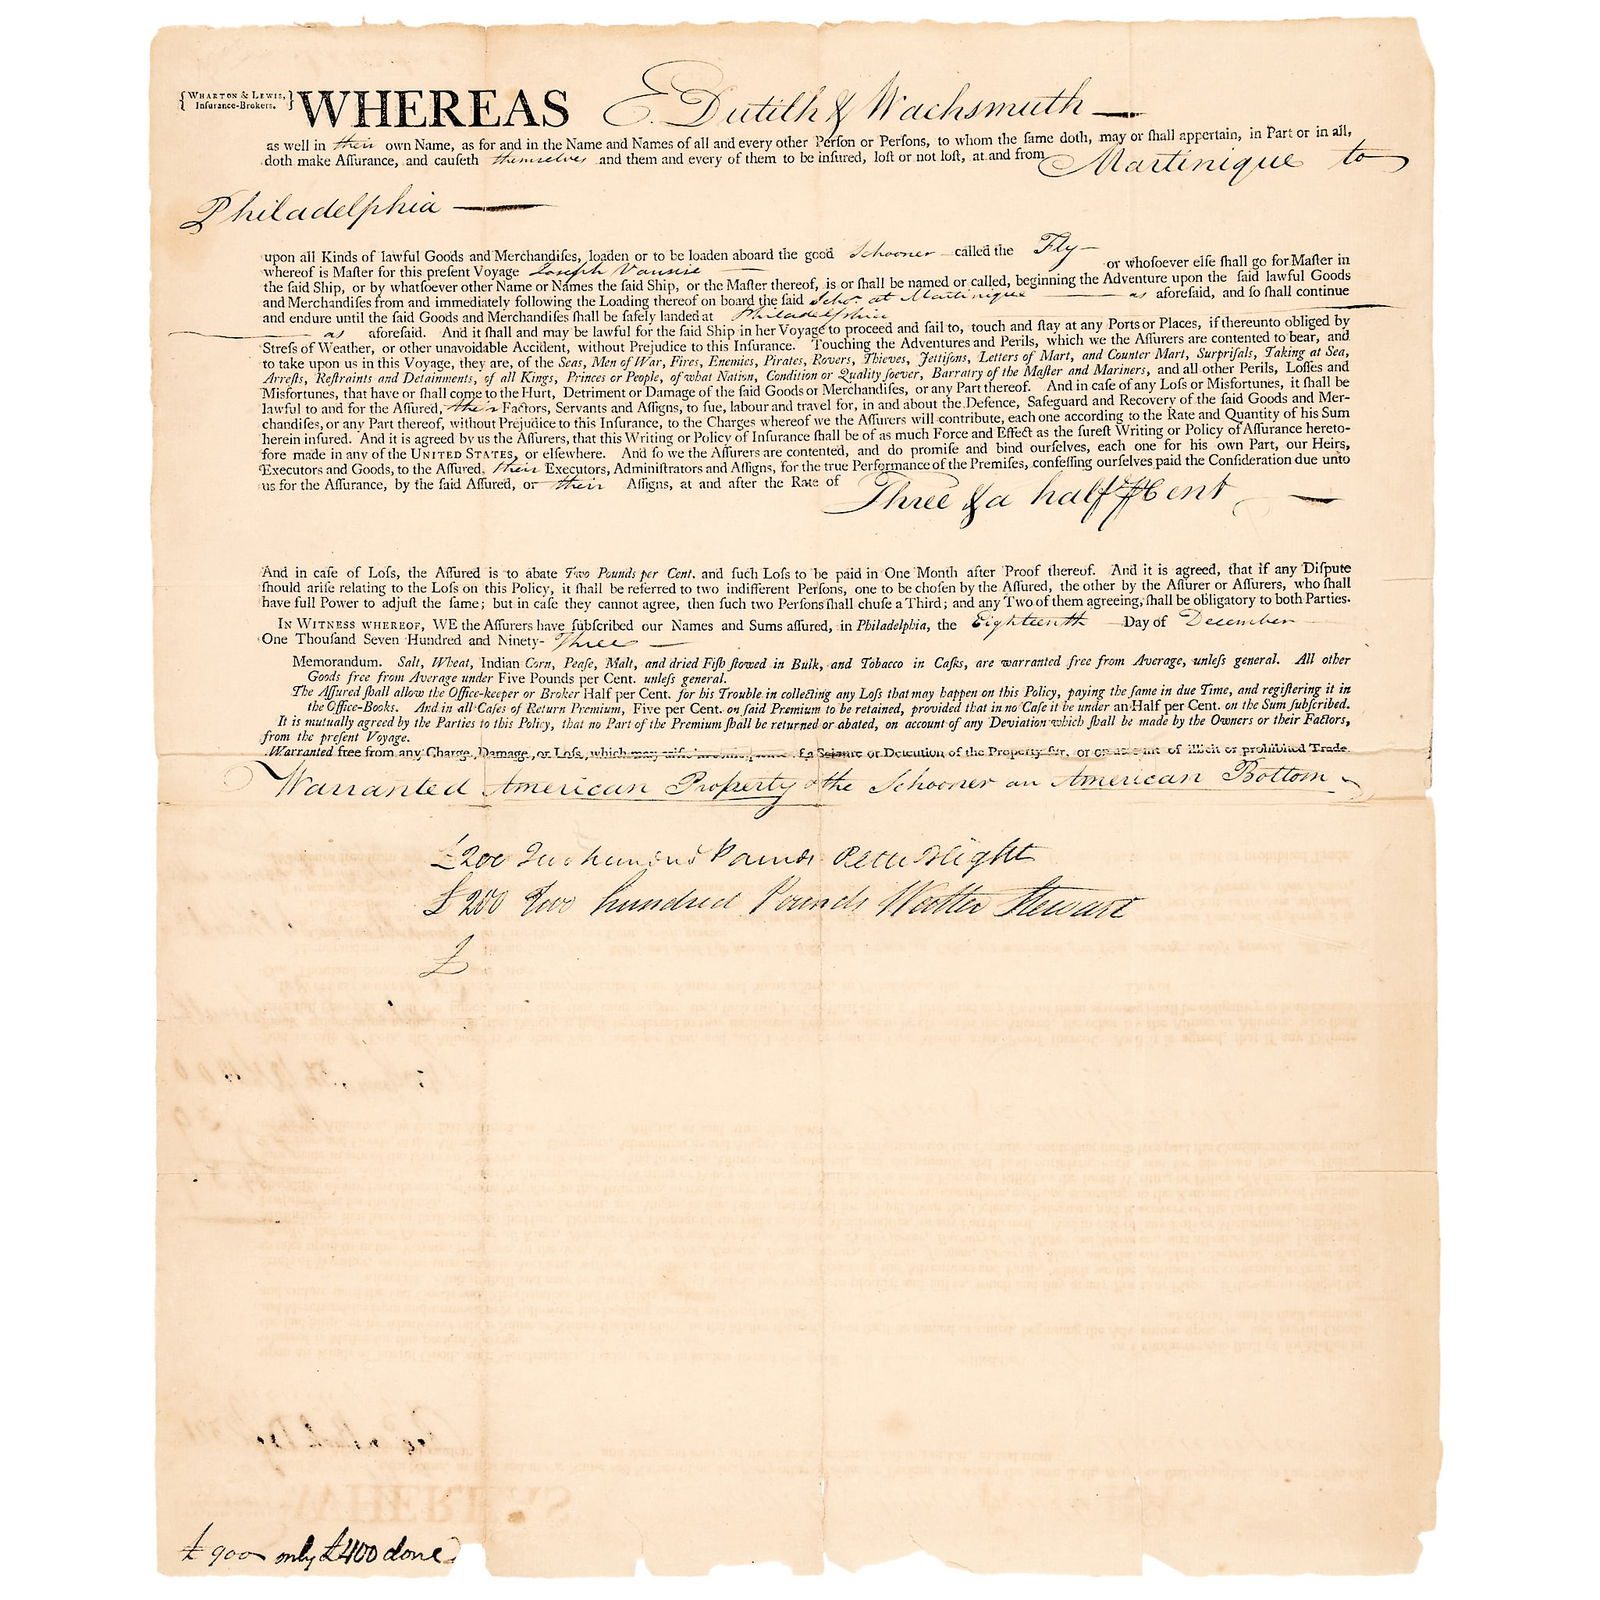 { WHARTON & LEWIS, }
Inſurance-Brokers.
WHEREAS E. Dutilh & Wachsmuth
as well in their own Name, as for and in the Name and Names of all and every other Perſon or Perſons, to whom the ſame doth, may or ſhall appertain, in Part or in all,
doth make Aſſurance, and cauſeth themselves and them and every of them to be inſured, loſt or not loſt, at and from Martinique to
Philadelphia
upon all Kinds of lawful Goods and Merchandiſes, loaden or to be loaden aboard the good Schooner called the Fly or whoſoever elſe ſhall go for Maſter in
whereof is Maſter for this preſent Voyage Joseph Vannie
the ſaid Ship, or by whatſoever other Name or Names the ſaid Ship, or the Maſter thereof, is or ſhall be named or called, beginning the Adventure upon the ſaid lawful Goods
and Merchandiſes from and immediately following the Loading thereof on board the ſaid Schr. at Martinique as aforeſaid, and ſo ſhall continue
and endure until the ſaid Goods and Merchandiſes ſhall be ſafely landed at Philadelphia
as aforeſaid. And it ſhall and may be lawful for the ſaid Ship in her Voyage to proceed and ſail to, touch and ſtay at any Ports or Places, if thereunto obliged by
Streſs of Weather, or other unavoidable Accident, without Prejudice to this Inſurance. Touching the Adventures and Perils, which we the Aſſurers are contented to bear, and
to take upon us in this Voyage, they are, of the Seas, Men of War, Fires, Enemies, Pirates, Rovers, Thieves, Jettiſons, Letters of Mart, and Counter Mart, Surpriſals, Taking at Sea,
Arreſts, Reſtraints and Detainments, of all Kings, Princes or People, of what Nation, Condition or Quality ſoever, Barratry of the Maſter and Mariners, and all other Perils, Loſſes and
Misfortunes, that have or ſhall come to the Hurt, Detriment or Damage of the ſaid Goods or Merchandiſes, or any Part thereof. And in caſe of any Loſs or Misfortunes, it ſhall be
lawful to and for the Aſſured, their Factors, Servants and Aſſigns, to ſue, labour and travel for, in and about the Defence, Safeguard and Recovery of the ſaid Goods and Mer-
chandiſes, or any Part thereof, without Prejudice to this Inſurance, to the Charges whereof we the Aſſurers will contribute, each one according to the Rate and Quantity of his Sum
herein inſured. And it is agreed by us the Aſſurers, that this Writing or Policy of Inſurance ſhall be of as much Force and Effect as the ſureſt Writing or Policy of Aſſurance hereto-
fore made in any of the UNITED STATES, or elſewhere. And ſo we the Aſſurers are contented, and do promiſe and bind ourſelves, each one for his own Part, our Heirs,
Executors and Goods, to the Aſſured, their Executors, Adminiſtrators and Aſſigns, for the true Performance of the Premiſes, confeſſing ourſelves paid the Conſideration due unto
us for the Aſſurance, by the ſaid Aſſured, or their Aſſigns, at and after the Rate of Three & a half ⅌ Cent
And in caſe of Loſs, the Aſſured is to abate Two Pounds per Cent. and ſuch Loſs to be paid in One Month after Proof thereof. And it is agreed, that if any Diſpute
ſhould ariſe relating to the Loſs on this Policy, it ſhall be referred to two indifferent Perſons, one to be choſen by the Aſſured, the other by the Aſſurer or Aſſurers, who ſhall
have full Power to adjuſt the ſame; but in caſe they cannot agree, then ſuch two Perſons ſhall chuſe a Third; and any Two of them agreeing, ſhall be obligatory to both Parties.
IN WITNESS WHEREOF, WE the Aſſurers have ſubſcribed our Names and Sums aſſured, in Philadelphia, the Eighteenth Day of December
One Thouſand Seven Hundred and Ninety-Three
Memorandum. Salt, Wheat, Indian Corn, Peaſe, Malt, and dried Fiſh ſtowed in Bulk, and Tobacco in Caſks, are warranted free from Average, unleſs general. All other
Goods free from Average under Five Pounds per Cent. unleſs general.
The Aſſured ſhall allow the Office-keeper or Broker Half per Cent. for his Trouble in collecting any Loſs that may happen on this Policy, paying the ſame in due Time, and regiſtering it in
the Office-Books. And in all Caſes of Return Premium, Five per Cent. on ſaid Premium to be retained, provided that in no Caſe it be under an Half per Cent. on the Sum ſubſcribed.
It is mutually agreed by the Parties to this Policy, that no Part of the Premium ſhall be returned or abated, on account of any Deviation which ſhall be made by the Owners or their Factors,
from the preſent Voyage.
Warranted free from any Charge, Damage, or Loſs, which may ariſe in conſequence of a Seizure or Detention of the Property for, or on account of illicit or prohibited Trade.
Warranted American Property & the Schooner an American Bottom
£200 Two hundred Pounds Peter Blight
£200 Two hundred Pounds Walter Stewart
£
£900 only £400 done